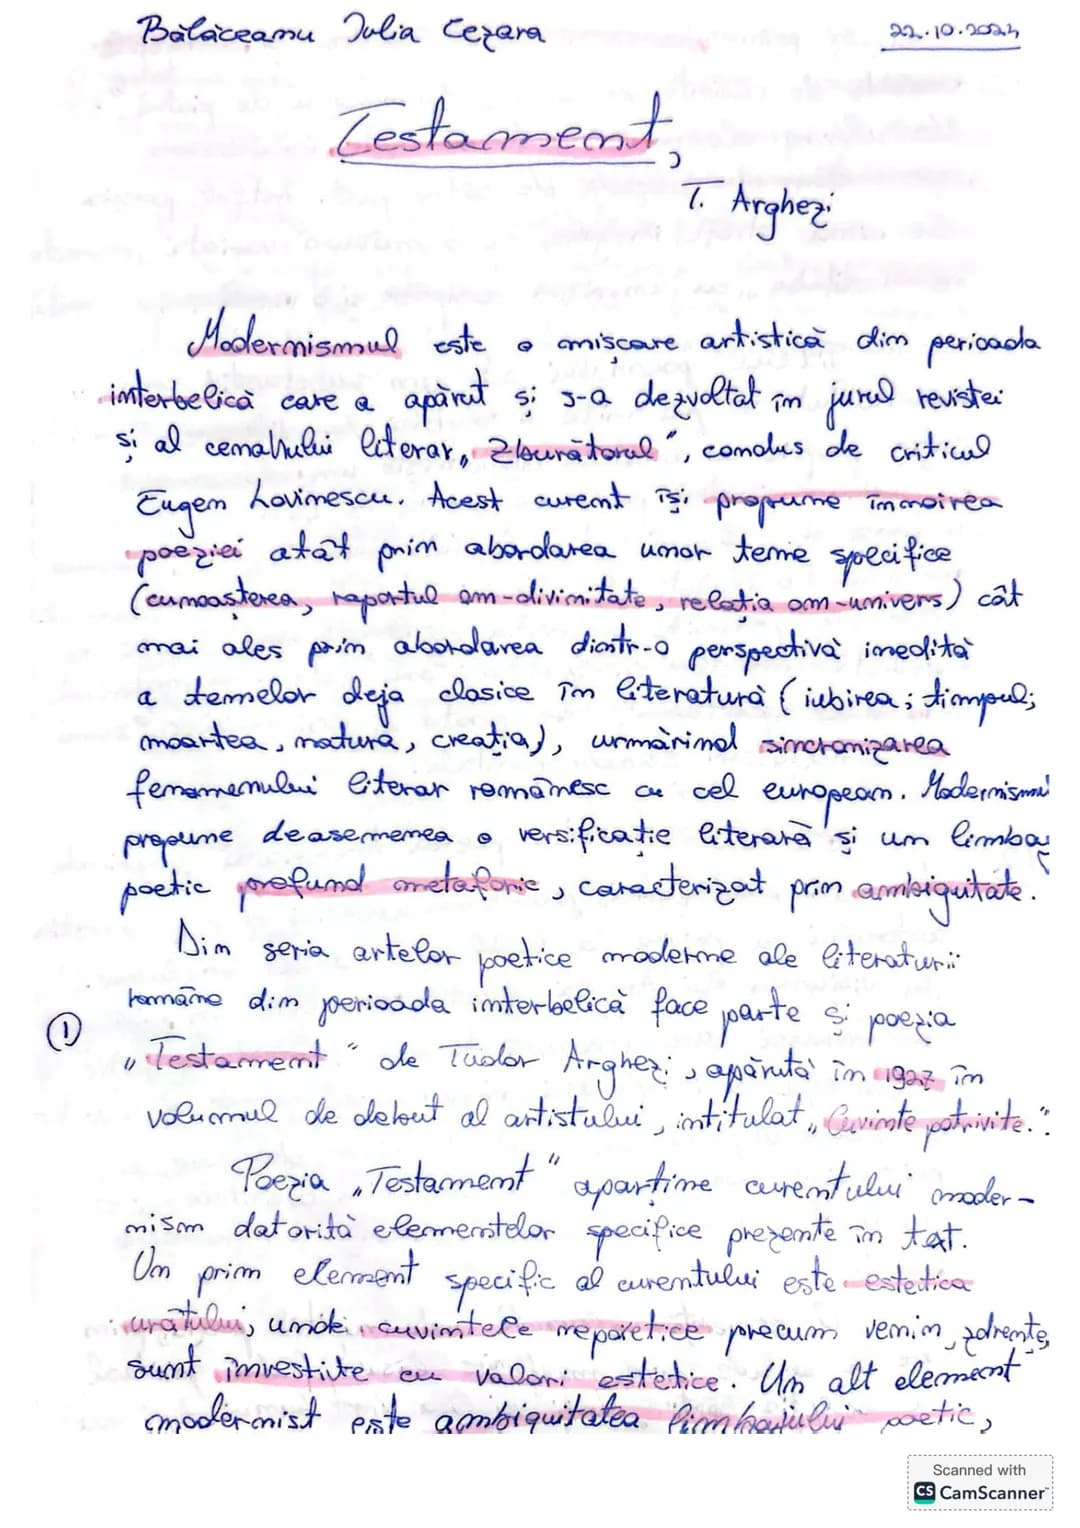 Bălăceanu Iulia Cezara 22.10.2024
Testament,
T. Arghezi
Modernismul este o mișcare artistică din perioada
interbelică care a apărut și s-a dezvoltat în jurul revistei
și al cenaclului literar „Zburătorul”, condus de criticul
Eugen Lovinescu. Acest curent își propune înnoirea
poeziei atât prin abordarea unor teme specifice
(cunoașterea, raportul om-divinitate, relația om-univers) cât
mai ales prim abordarea dintr-o perspectivă inedită
a temelor deja clasice în literatură (iubirea; timpul;
moartea, natura, creația), urmărind sincronizarea
fenomenului literar românesc cu cel european. Modernismul
propune deasemenea o versificație literară și un limbaj
poetic profund metaforic, caracterizat prin ambiguitate.
Din seria artelor poetice moderne ale literaturii
române din perioada interbelică face parte și poezia
① „Testament” de Tudor Arghezi, apărută în 1927 în
volumul de debut al artistului, intitulat „Cuvinte potrivite.”
Poezia „Testament” aparține curentului moder-
nism datorită elementelor specifice prezente în text.
Un prim element specific al curentului este estetica
urâtului, unde cuvintele nepoetice precum venin, zdrențe,
sunt învestite cu valori estetice. Un alt element
modernist este ambiguitatea limbajului poetic,
Scanned with
CS CamScanner